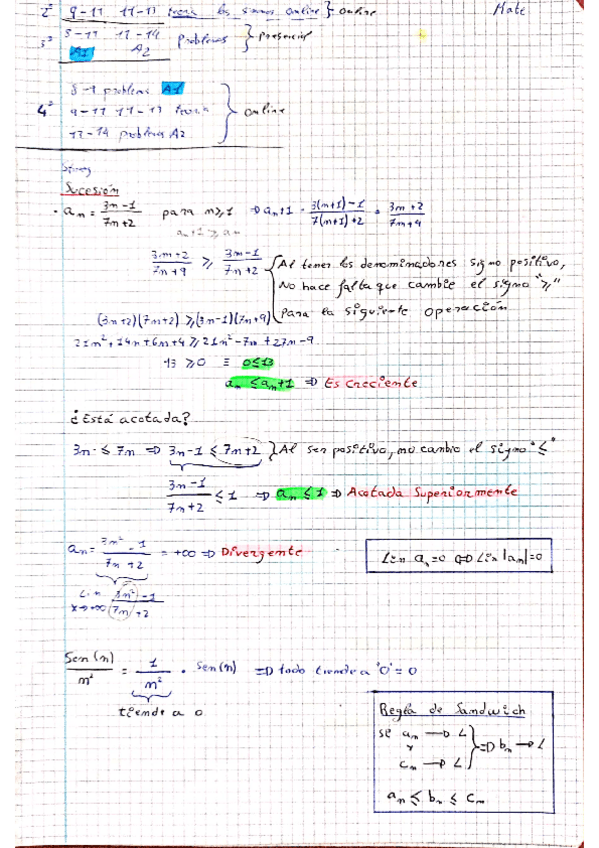 2º 9-11 11-13 teoria los somos online } online
Mate
3º 8-11 11-14 problemas } presencial
A1 A2
8-9 problema A1
4º 9-11 11-13 teoria } online
12-14 problema A2
Sucesión
· aₙ = (3n-1)/(7n+2) para n≥1 ⇒ aₙ+1 = (3(n+1)-1)/(7(n+1)+2) = (3n+2)/(7n+9)
aₙ+1 ≥ aₙ
(3n+2)/(7n+9) ≥ (3n-1)/(7n+2) { Al tener los denominadores signo positivo,
No hace falta que cambie el signo "≥"
Para la siguiente operación
(3n+2)(7n+2) ≥ (3n-1)(7n+9)
21n²+14n+6n+4 ≥ 21n²-7n+27n-9
13 ≥ 0 ≡ 0≤13
aₙ ≤ aₙ+1 ⇒ Es Creciente
¿Está acotada?
3n ≤ 7n ⇒ 3n-1 ≤ 7n+2 } Al ser positivo, no cambio el signo "≤"
(3n-1)/(7n+2) ≤ 1 ⇒ aₙ ≤ 1 ⇒ Acotada Superiormente
aₙ = (3n²-1)/(7n+2) = +∞ ⇒ Divergente
Lim aₙ=0 ⇔ Lim |aₙ|=0
Lim x→+∞ (3n²-1)/(7n+2)
Sen(n)/n² = 1/n² · Sen(n) ⇒ todo tiende a '0' = 0
tiende a 0
Regla de Sandwich
se aₙ → L
y } ⇒ bₙ → L
cₙ → L
aₙ ≤ bₙ ≤ cₙ